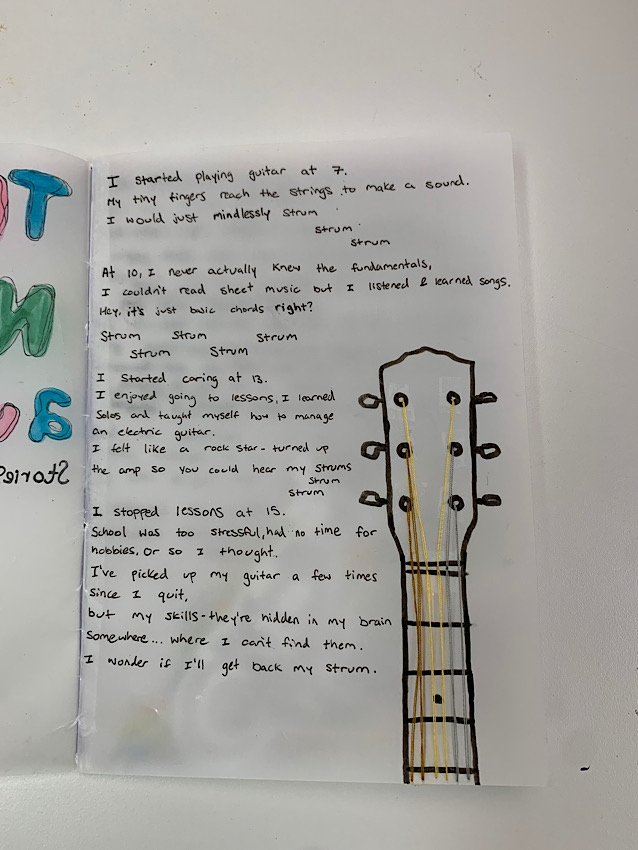 I started playing guitar at 7.
My tiny fingers reach the strings to make a sound.
I would just mindlessly strum
strum
strum
At 10, I never actually knew the fundamentals,
I couldn't read sheet music but I listened & learned songs.
Hey, it's just basic chords right?
Strum Strum Strum
Strum Strum
I started caring at 13.
I enjoyed going to lessons, I learned
Solos and taught myself how to manage
an electric guitar.
I felt like a rock star - turned up
the amp so you could hear my strums
Strum
Strum
I stopped lessons at 15.
School was too stressful, had no time for
hobbies. Or so I thought.
I've picked up my guitar a few times
Since I quit,
but my skills - they're hidden in my brain
Somewhere... where I can't find them.
I wonder if I'll get back my strum.
Stories